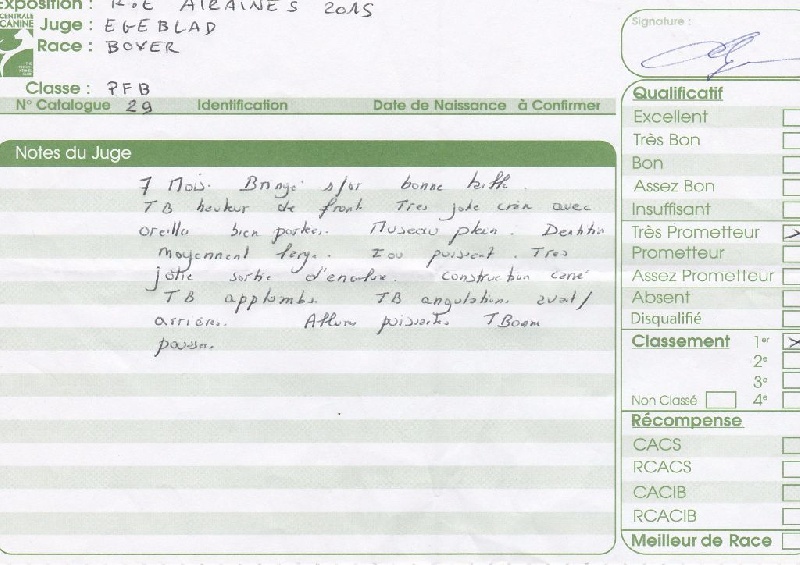 Exposition : R.E AIRAINES 2015
CENTRALE CANINE
Juge : EGEBLAD
Race : BOXER
Classe : PFB
N° Catalogue 29 Identification Date de Naissance à Confirmer
Notes du Juge
7 Mois. Bringé s/or bonne taille.
TB hauteur de front Tres jolie crâne avec
oreilles bien portées. Museau plein.
moyennement large. Cou puissant. Tres
jolie sortie d'encolure. Construction carré
TB applombs. TB angulations avant/
arriére. Allure puissante. TBonne
Signature :
Qualificatif
Excellent
Très Bon
Bon
Assez Bon
Insuffisant
Très Prometteur
Prometteur
Assez Prometteur
Absent
Disqualifié
Classement 1er
2e
3e
Non Classé 4e
Récompense
CACS
RCACS
CACIB
RCACIB
Meilleur de Race